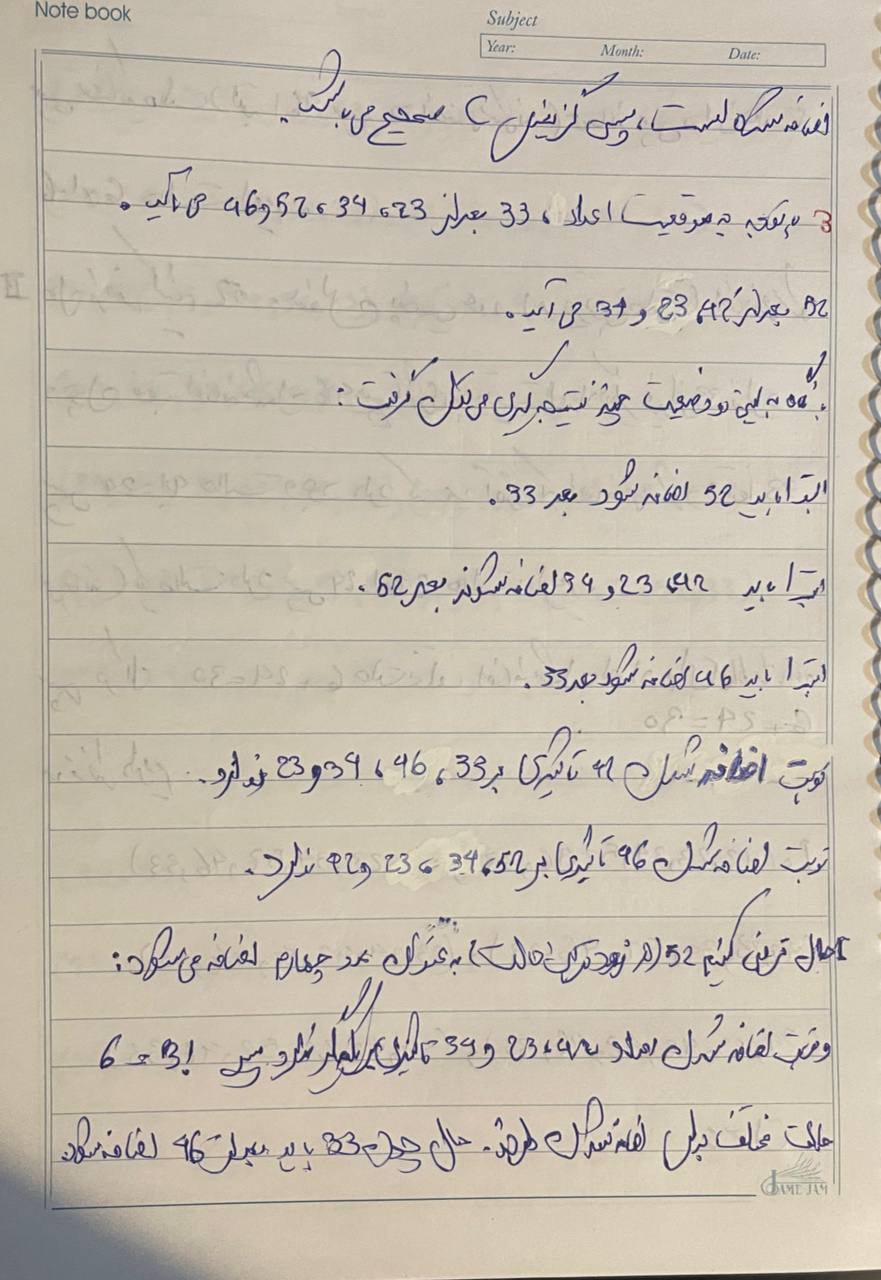 Note book
Subject
Year: Month: Date:
اضافه شده است، پس گزینه‌ی C صحیح می‌باشد.
3 با توجه به موقعیت اعداد، 33 بعد از 23، 34، 52 و 46 می‌آید.
52 بعد از 42، 23 و 34 می‌آید.
با نگاه به این دو وضعیت چند نتیجه‌گیری می‌توان گرفت:
ابتدا باید 52 اضافه شود بعد 33.
ابتدا باید 42، 23 و 34 اضافه شوند بعد 52.
ابتدا باید 46 اضافه شود بعد 33.
نوبت اضافه شدن 42 تاثیری بر 33، 46، 34 و 23 ندارد.
نوبت اضافه شدن 46 تاثیری بر 52، 34، 23 و 42 ندارد.
حال فرض کنیم 52 (در زودترین حالت) به عنوان عدد چهارم اضافه می‌شود:
نوبت اضافه شدن اعداد 42، 23 و 34 تاثیری بر یکدیگر ندارد پس 3! = 6
حالت مختلف برای اضافه شدن دارند. حال چون 33 باید بعد از 46 اضافه شود
GAME JAM